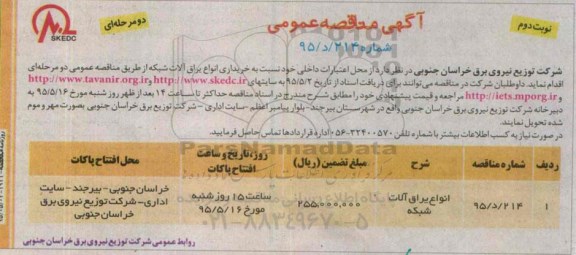 نوبت دوم
آگهی مناقصه عمومی
دو مرحله‌ای
SKEDC
شماره ۲۱۴/د/۹۵
شرکت توزیع نیروی برق خراسان جنوبی در نظر دارد از محل اعتبارات داخلی خود نسبت به خریداری انواع یراق آلات شبکه از طریق مناقصه عمومی دو مرحله‌ای
اقدام نماید. داوطلبان شرکت در مناقصه می‌توانند برای دریافت اسناد از تاریخ ۹۵/۵/۲ به سایتهای http://www.skedc.ir و http://www.tavanir.org.ir
و http://iets.mporg.ir مراجعه و قیمت پیشنهادی خود را مطابق شرح مندرج در اسناد مناقصه حداکثر تا ساعت ۱۴ بعد از ظهر روز شنبه مورخ ۹۵/۵/۱۶ به
دبیرخانه شرکت توزیع نیروی برق خراسان جنوبی واقع در شهرستان بیرجند-بلوار پیامبر اعظم-سایت اداری - شرکت توزیع نیروی برق خراسان جنوبی بصورت مهر و موم
شده تحویل نمایند.
در صورت نیاز به کسب اطلاعات بیشتر با شماره تلفن ۳۲۴۰۰۵۷۰-۰۵۶ اداره قراردادها تماس حاصل فرمایید.
ParsNamadData
ردیف شماره مناقصه شرح مبلغ تضمین (ریال) روز، تاریخ و ساعت افتتاح پاکات محل افتتاح پاکات
۱ ۲۱۴/د/۹۵ انواع یراق آلات شبکه ۲۵۵,۰۰۰,۰۰۰ ساعت ۱۵ روز شنبه مورخ ۹۵/۵/۱۶ خراسان جنوبی - بیرجند - سایت اداری - شرکت توزیع نیروی برق خراسان جنوبی
۰۲۱-۸۸۳۴۹۶۷۰-۵
روابط عمومی شرکت توزیع نیروی برق خراسان جنوبی